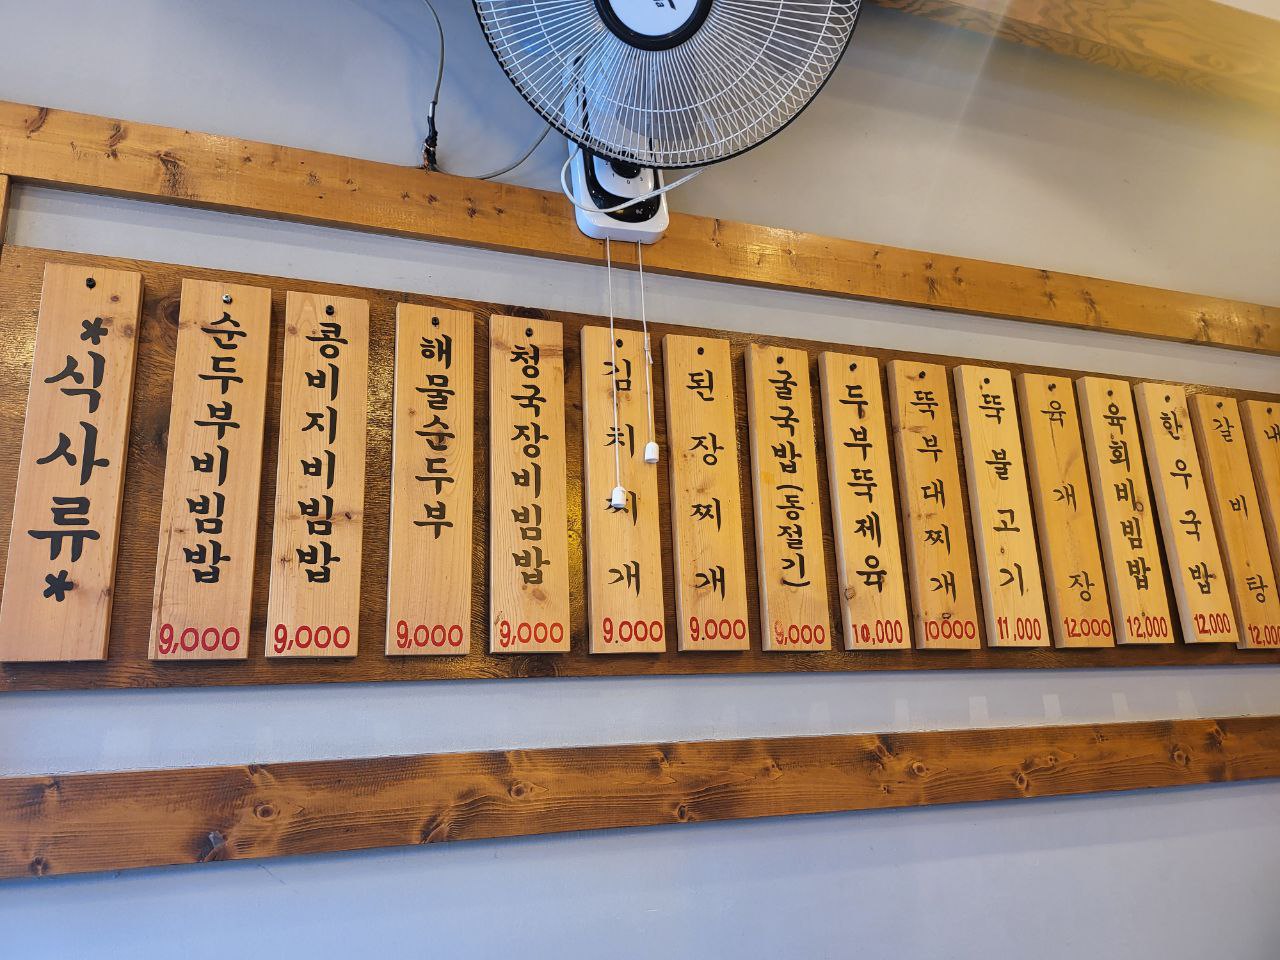 *식사류*
순두부비빔밥 9,000
콩비지비빔밥 9,000
해물순두부 9,000
청국장비빔밥 9,000
김치찌개 9.000
된장찌개 9.000
굴국밥(동절기) 9,000
두부뚝제육 10,000
뚝부대찌개 10000
뚝불고기 11,000
육개장 12.000
육회비빔밥 12,000
한우국밥 12,000
갈비탕 12,000
내